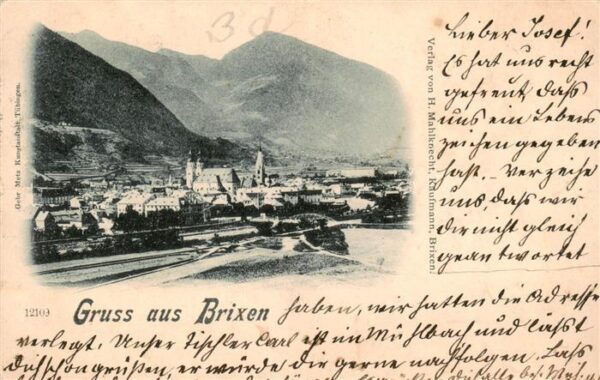 3d
Lieber Josef!
Es hat uns recht
gefreut, dass
uns ein Lebens
zeichen gegeben
hast. - Verzeihe
uns, dass wir
dir nicht gleich
geantwortet
Verlag von H. Mahlknecht, Kaufmann, Brixen.
Gebr Metz Kunstanstalt, Tübingen.
12109
Gruss aus Brixen
haben, wir hatten die Adresse
verlegt. Unser Tischler Carl ist im Mühlbach und lässt
dich schön grüßen, er würde dir gerne nachfolgen. Lass